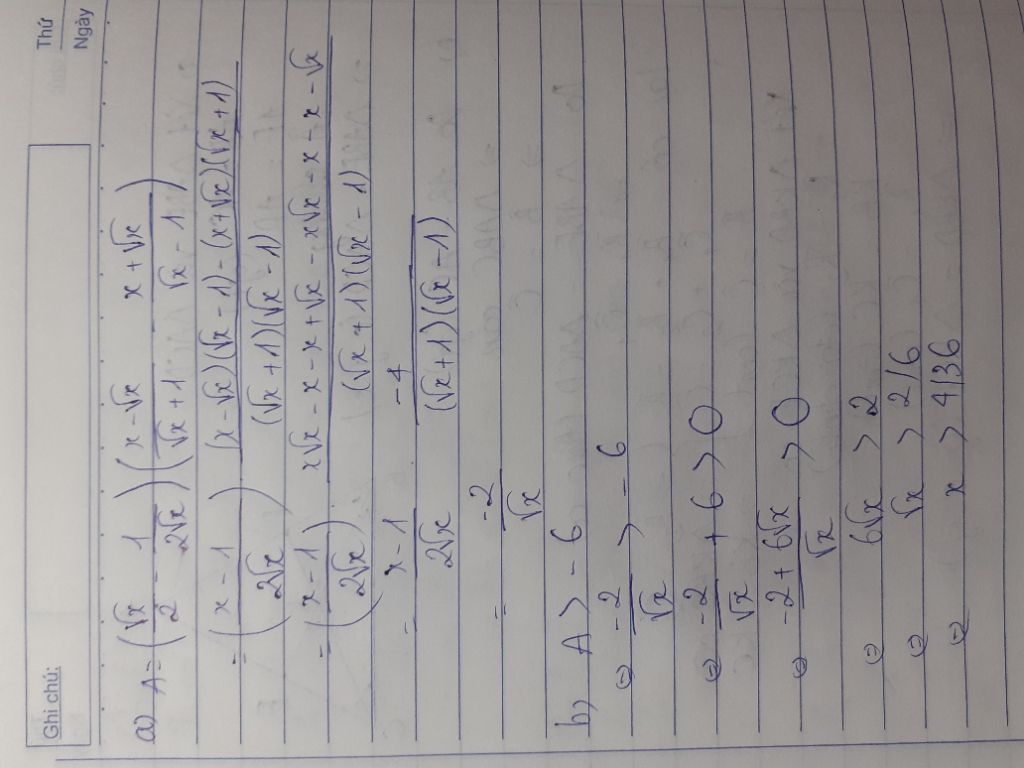 Thứ
Ngày
Ghi chú:
a) A = (√x/2 - 1/2√x)(x-√x/√x+1 - x+√x/√x-1)
= (x-1/2√x) (x-√x)(√x-1)-(x+√x)(√x+1)/(√x+1)(√x-1)
= (x-1/2√x) x√x-x-x+√x-x√x-x-x-√x/(√x+1)(√x-1)
= x-1/2√x -4/(√x+1)(√x-1)
= -2/√x
b) A > -6
⇔ -2/√x > -6
⇔ -2/√x + 6 > 0
⇔ -2+6√x/√x > 0
⇔ 6√x > 2
⇔ √x > 2/6
⇔ x > 4/36